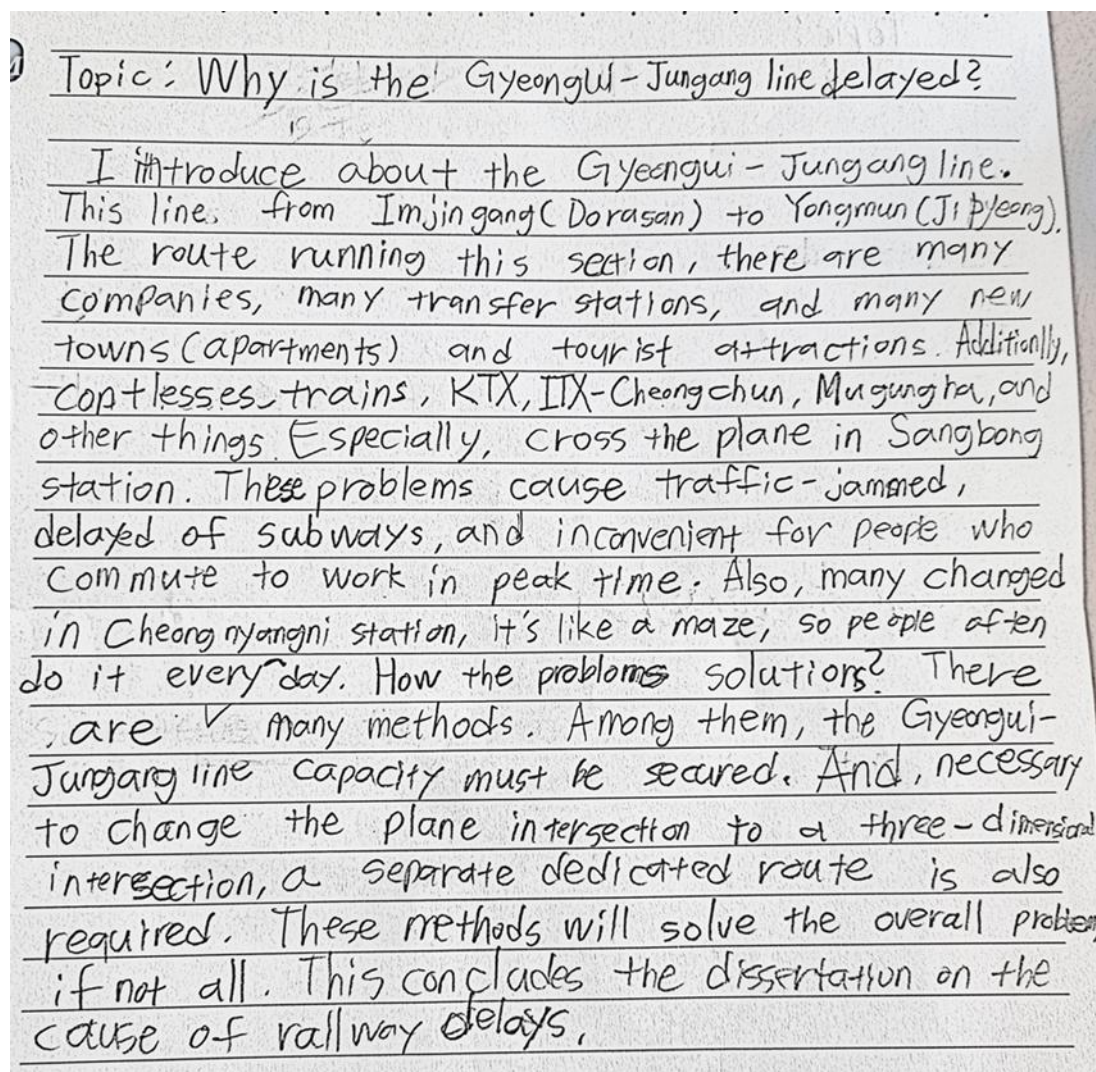 Topic: Why is the Gyeongui-Jungang line delayed?
I introduce about the Gyeongui-Jungang line.
This line, from Imjingang(Dorasan) to Yongmun(Jipyeong).
The route running this section, there are many
companies, many transfer stations, and many new
towns(apartments) and tourist attractions. Additionlly,
trains, KTX, ITX-Cheongchun, Mugungha, and
other things. Especially, cross the plane in Sangbong
station. These problems cause traffic-jammed,
delayed of subways, and inconvenient for people who
commute to work in peak time. Also, many changed
in Cheongnyangni station, it's like a maze, so people often
do it every day. How the problems solutions? There
are many methods. Among them, the Gyeongui-
Jungang line capacity must be secured. And, necessary
to change the plane intersection to a three-dimensional
intersection, a separate dedicated route is also
required. These methods will solve the overall problem
if not all. This concludes the dissertation on the
cause of railway delays.